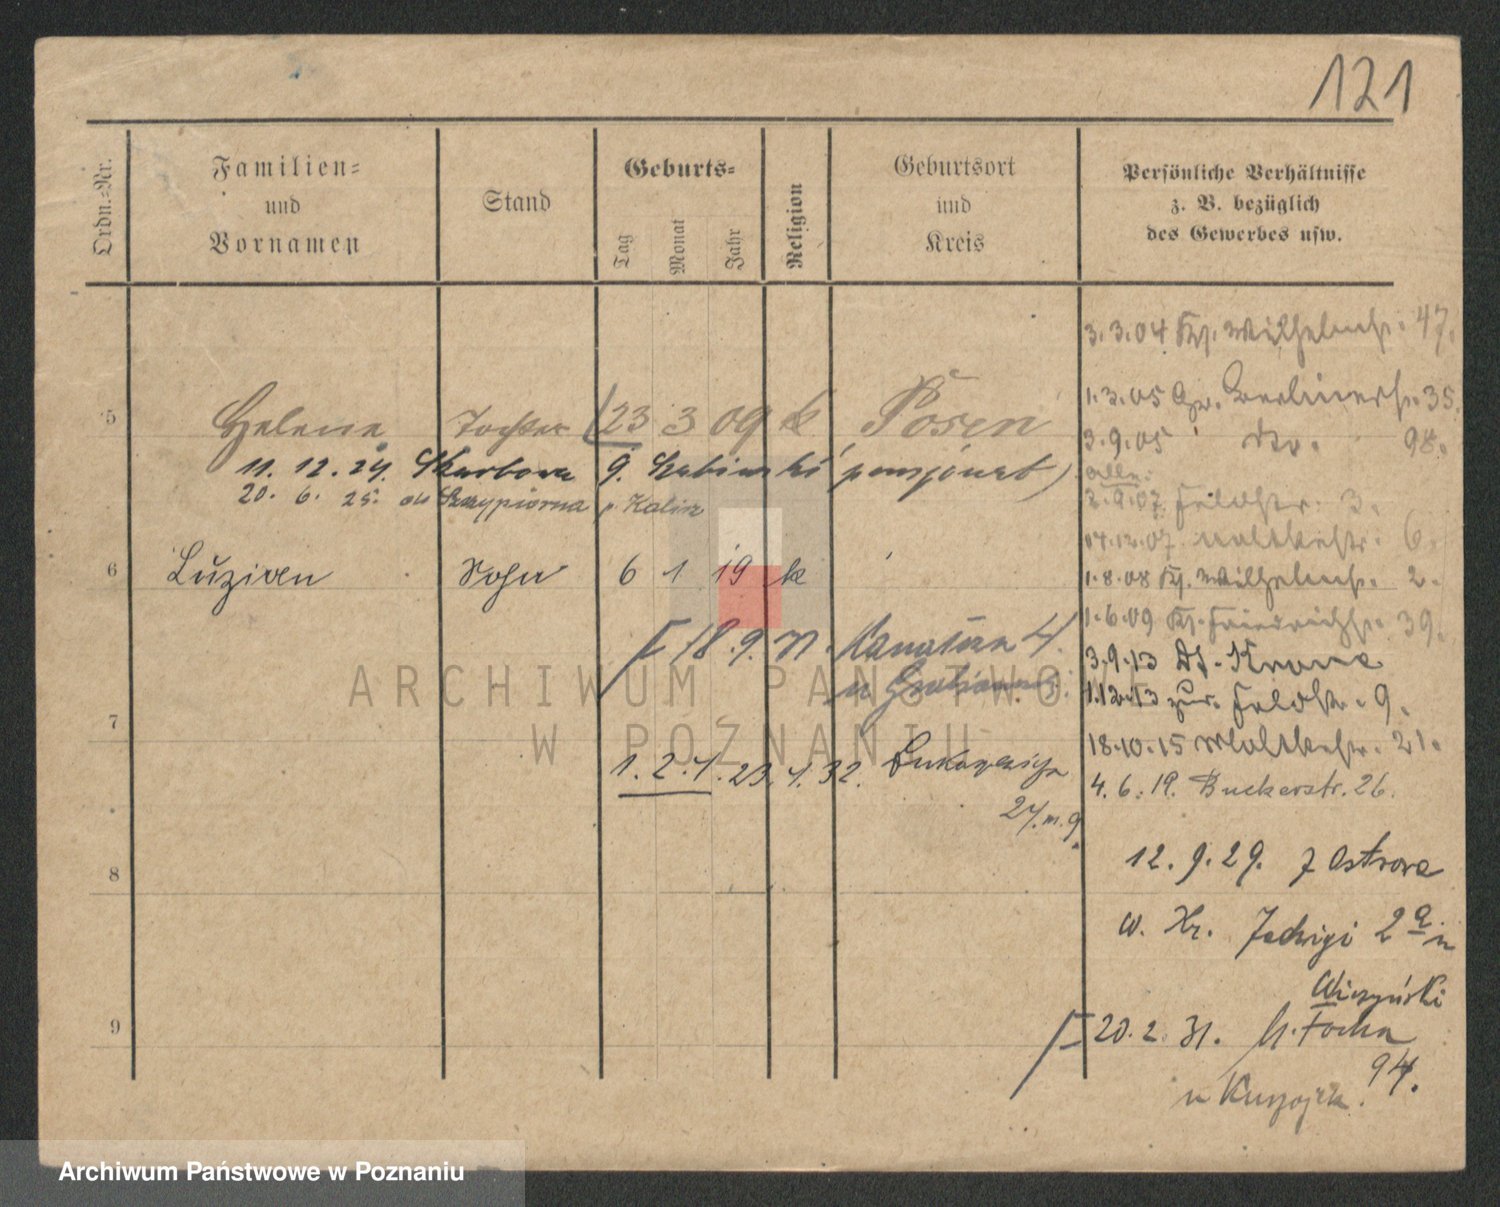 121
Ordn.-Nr.
Familien-
und
Vornamen
Stand
Geburts-
Tag
Monat
Jahr
Religion
Geburtsort
und
Kreis
Persönliche Verhältnisse
z. B. bezüglich
des Gewerbes usw.
3.3.04 Wilhelmstr. 47.
1.3.05 Berlinerstr. 35.
5 Helena Tochter 23 3 09 k Posen
3.9.05 98.
11.12.24. Skarbowa 9. pensjonat)
20.6.25. Szczypiorna p. Kalisz
2.9.07. Feldstr. 3.
14.12.07. Moltkestr. 6.
6 Luzian Sohn 6 1 19 k
1.8.08 Wilhelmstr. 2.
1.6.09 Friedrichstr. 39.
18.9.31. 4.
3.9.13 Dt. Krone
1.12.13 zur. Feldstr. 9.
7
18.10.15 Moltkestr. 21.
1.2.1. 23.1.32.
27. m. 9
4.6.19. Buckerstr. 26.
8
12.9.29. z Ostrowa
w. Kr. Jadwigi 2a u
9
20.2.31. M. Focha
94.
u
ARCHIWUM PAŃSTWOWE
W POZNANIU
Archiwum Państwowe w Poznaniu